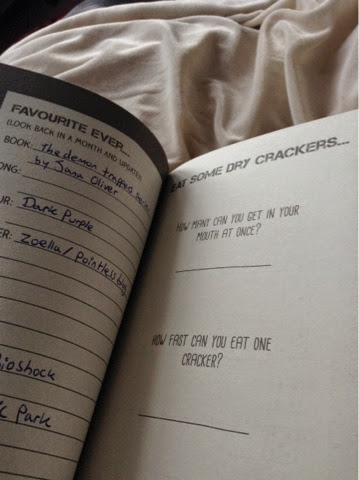 FAVOURITE EVER...
(LOOK BACK IN A MONTH AND UPDATE)
BOOK: The demon
by Jana Oliver
ONG:
UR: Dark Purple
ER: Zoella/pointlessblog
ioshock
c Park
EAT SOME DRY CRACKERS...
HOW MANY CAN YOU GET IN YOUR
MOUTH AT ONCE?
HOW FAST CAN YOU EAT ONE
CRACKER?